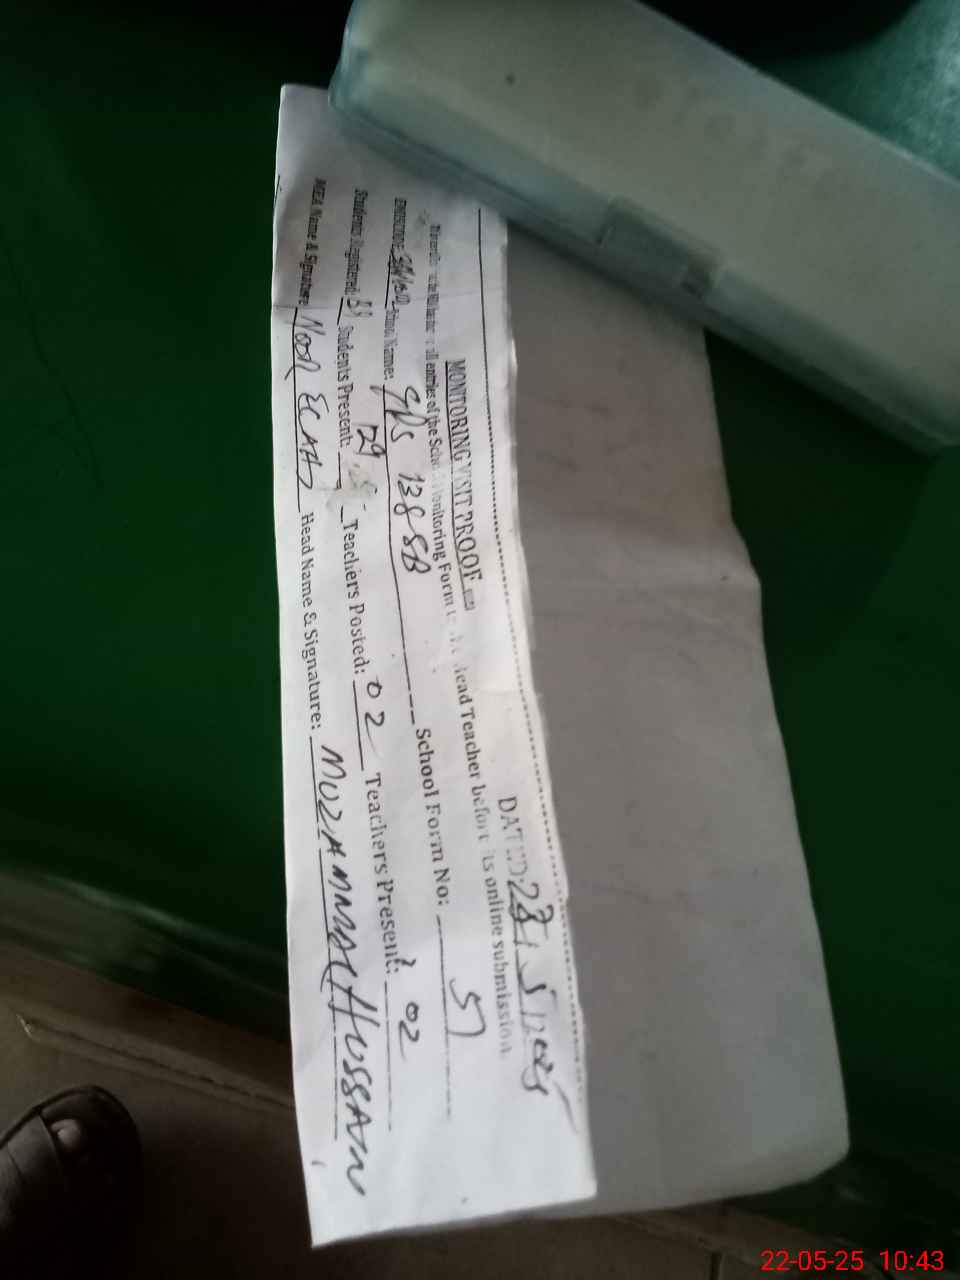 MONITORING VISIT PROOF
DATED: 5/2025
all entries of the School Monitoring Form to the Head Teacher before its online submission
EMISCODE: Name: GPS 138 SB School Form No: 57
Students Registered: Students Present: 29 Teachers Posted: 02 Teachers Present: 02
MEA Name & Signature: Noor Head Name & Signature: MUZAMMAL HUSSAIN
22-05-25 10:43